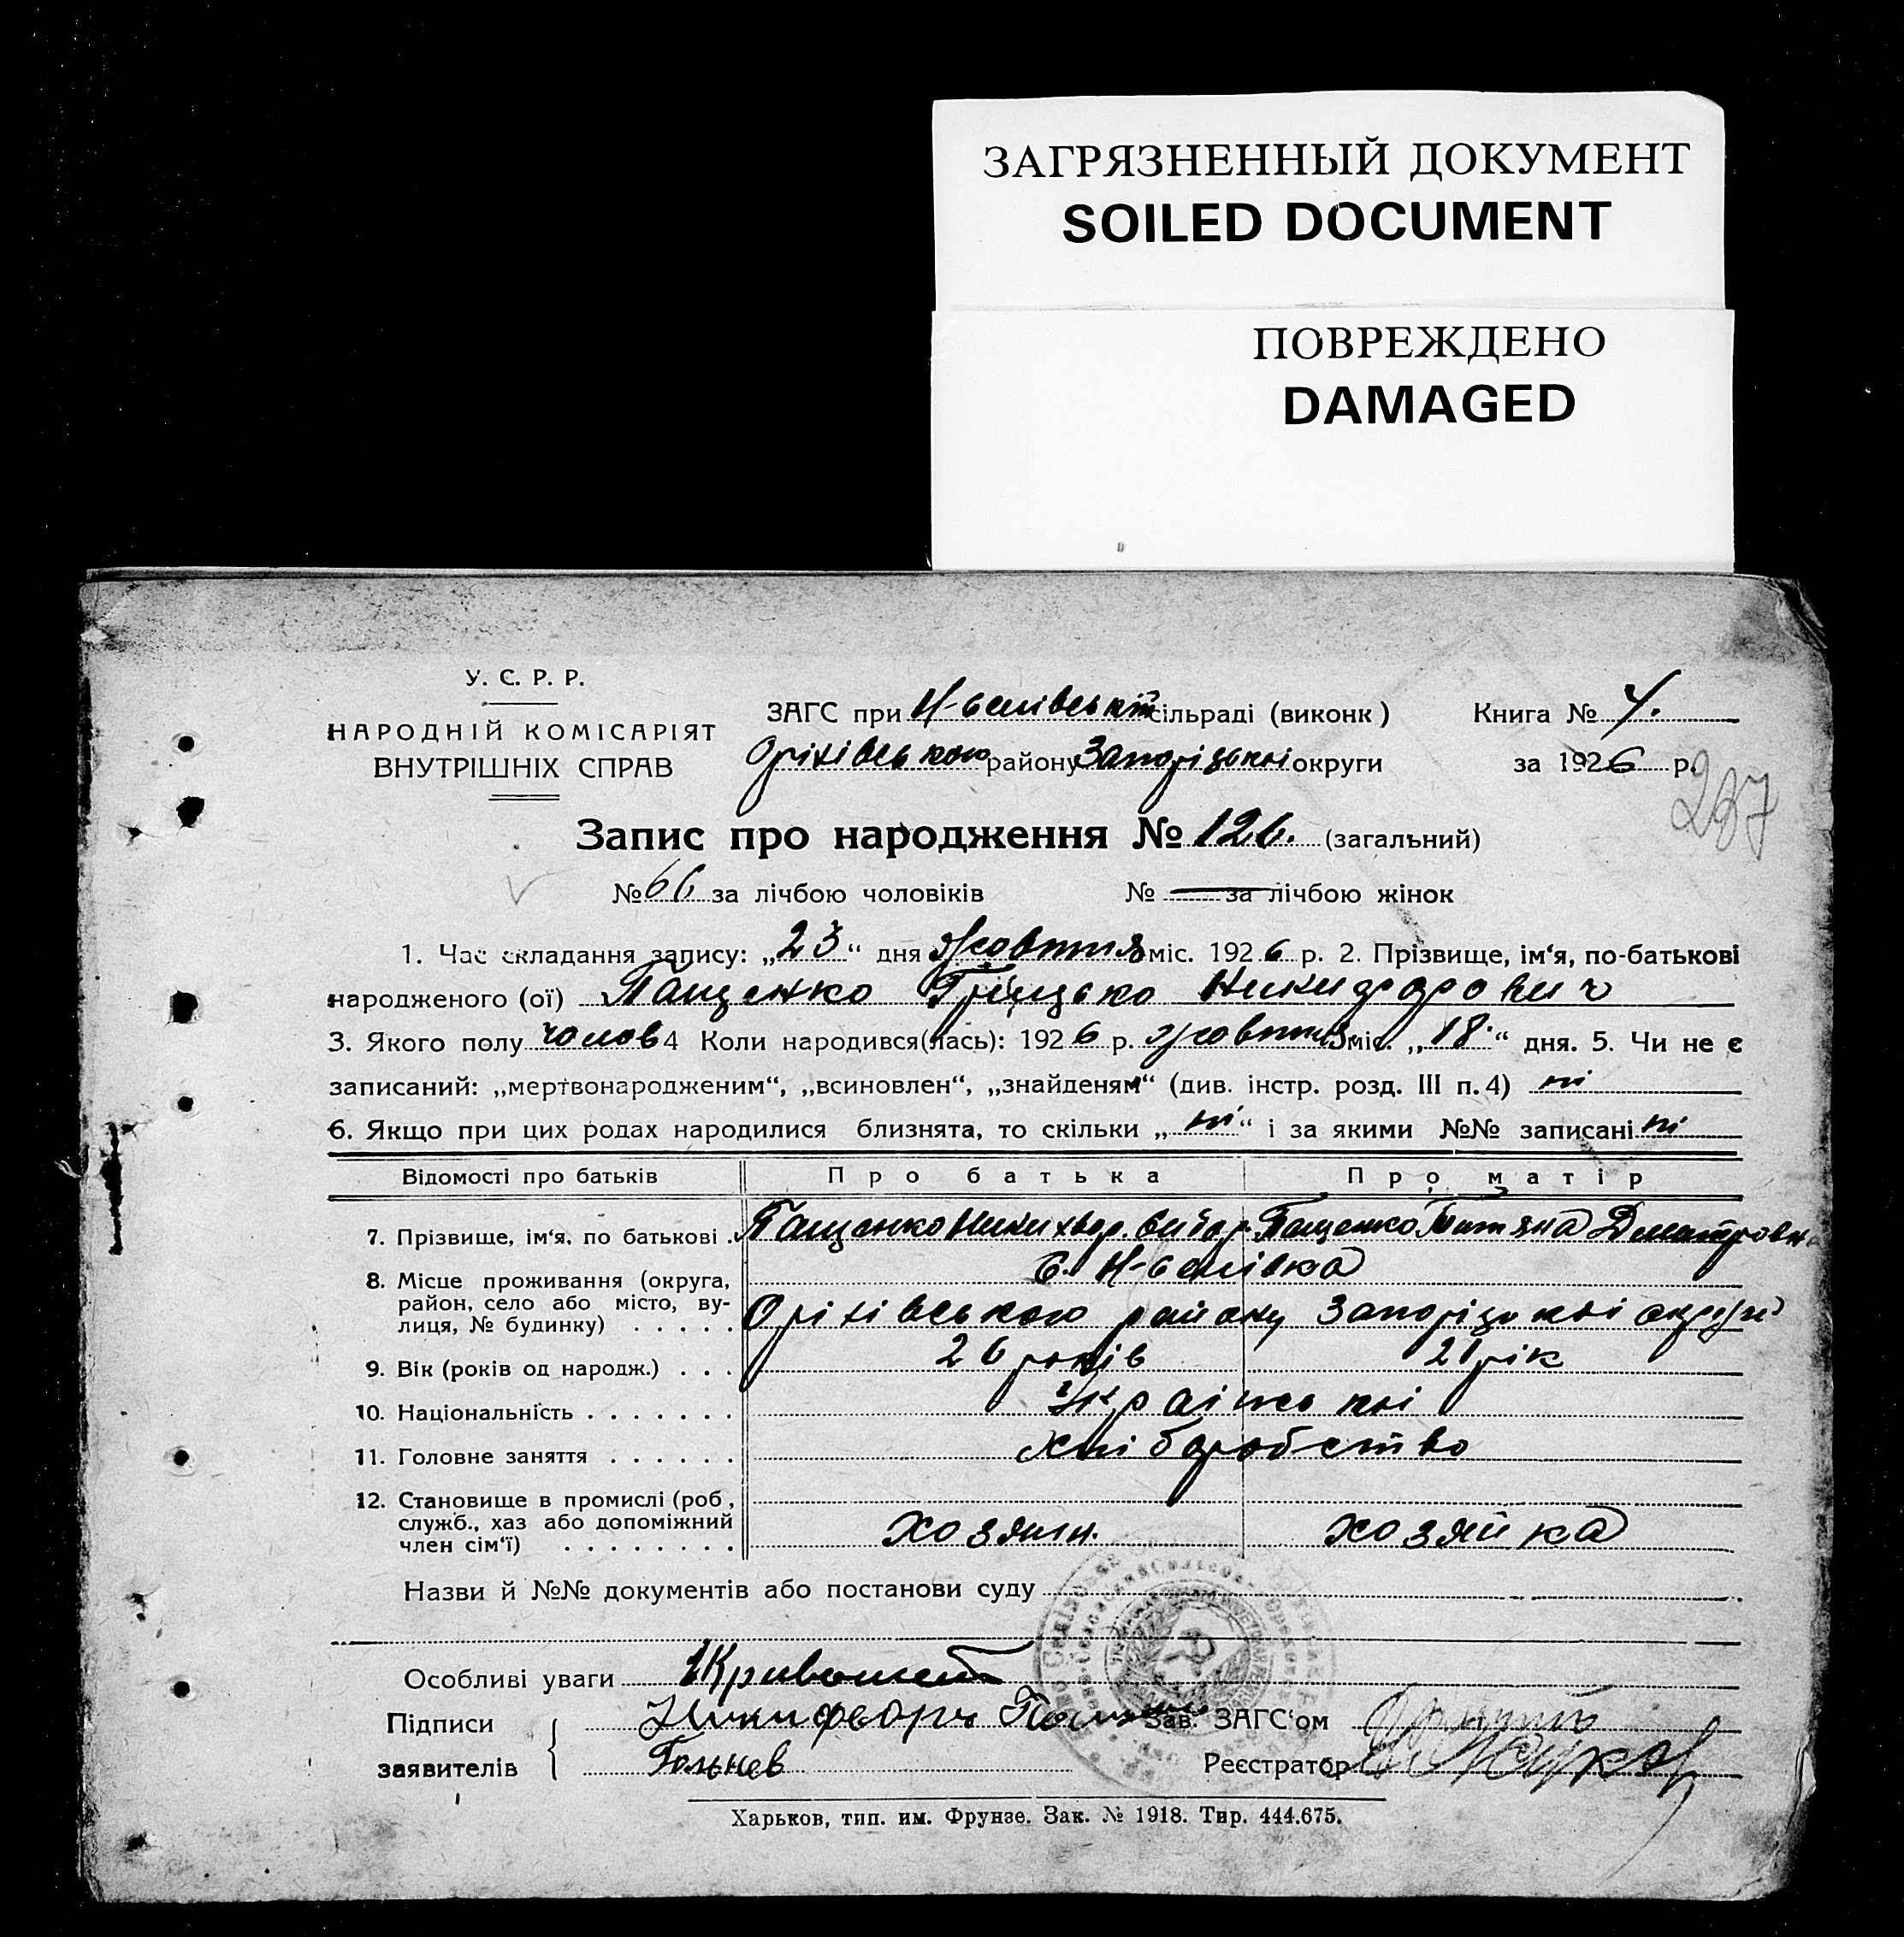 ЗАГРЯЗНЕННЫЙ ДОКУМЕНТ
SOILED DOCUMENT
ПОВРЕЖДЕНО
DAMAGED
У. С. Р. Р.
НАРОДНІЙ КОМІСАРІЯТ
ВНУТРІШНІХ СПРАВ
ЗАГС при сільраді (виконк) Книга № 4.
Оріхівського району Запорізької округи за 1926 р.
237
Запис про народження № 126. (загальний)
№ 66 за лічбою чоловіків № за лічбою жінок
1. Час складання запису: „23“ дня Жовтня міс. 1926 р. 2. Прізвище, ім‘я, по-батькові
народженого (ої) Пащенко Грицько Никифорович
3. Якого полу чолов 4 Коли народився(лась): 1926 р. жовтня міс. „18“ дня. 5. Чи не є
записаний: „мертвонародженим“, „всиновлен“, „знайденям“ (див. інстр. розд. III п. 4) ні
6. Якщо при цих родах народилися близнята, то скільки „ні“ і за якими №№ записані ні
Відомості про батьків Про батька Про матір
7. Прізвище, ім‘я, по батькові . Пащенко Пащенко Татяна Дмитровна
8. Місце проживання (округа,
район, село або місто, вулиця, № будинку) . . . . . Оріхівського району Запорізької округи
9. Вік (років од народж.) . . . 26 років 21 рік
10. Національність . . . . . . .
11. Головне заняття . . . . . . хліборобство
12. Становище в промислі (роб,
служб., хаз або допоміжний
член сім‘ї) . . . . . . . . хозяин. хозяйка
Назви й №№ документів або постанови суду
Особливі уваги
Підписи Зав. ЗАГС‘ом
заявителів Реєстратор
Харьков, тип. им. Фрунзе. Зак. № 1918. Тир. 444.675.